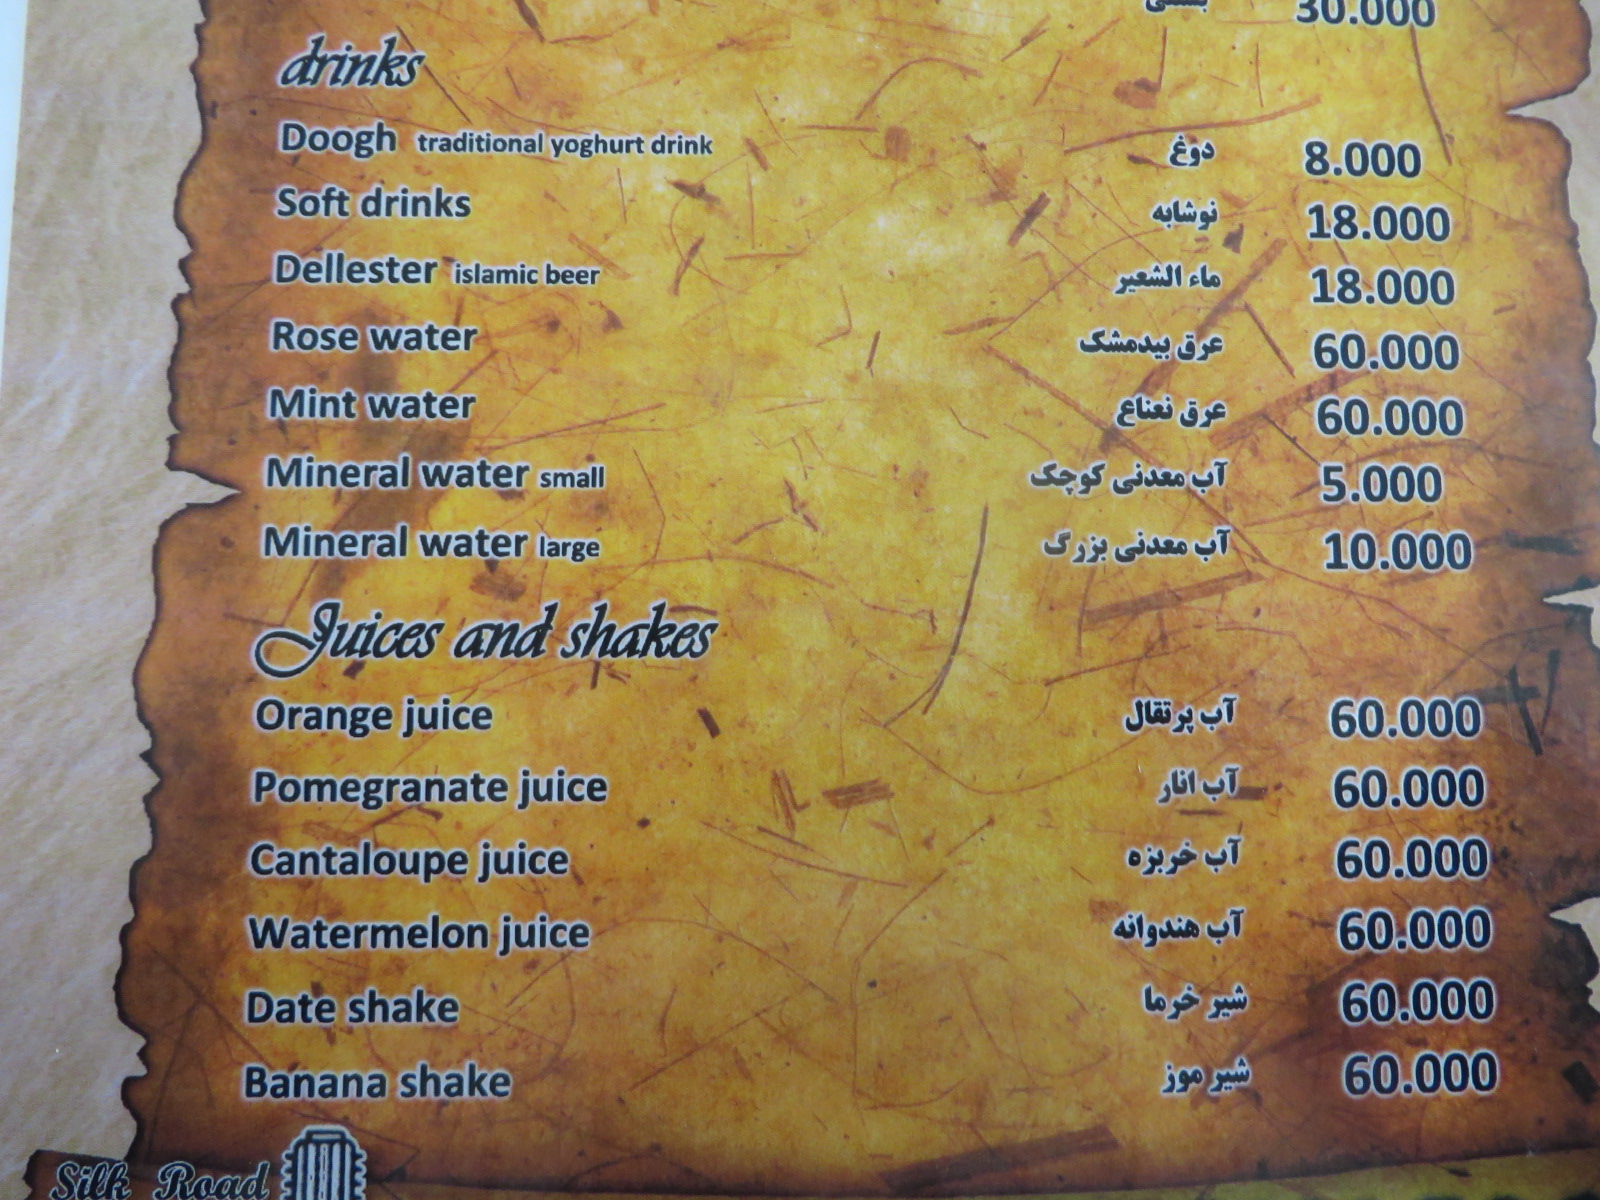 بستنی 30.000
drinks
Doogh traditional yoghurt drink دوغ 8.000
Soft drinks نوشابه 18.000
Dellester islamic beer ماء الشعیر 18.000
Rose water عرق بیدمشک 60.000
Mint water عرق نعناع 60.000
Mineral water small آب معدنی کوچک 5.000
Mineral water large آب معدنی بزرگ 10.000
Juices and shakes
Orange juice آب پرتقال 60.000
Pomegranate juice آب انار 60.000
Cantaloupe juice آب خربزه 60.000
Watermelon juice آب هندوانه 60.000
Date shake شیر خرما 60.000
Banana shake شیر موز 60.000
Silk Road